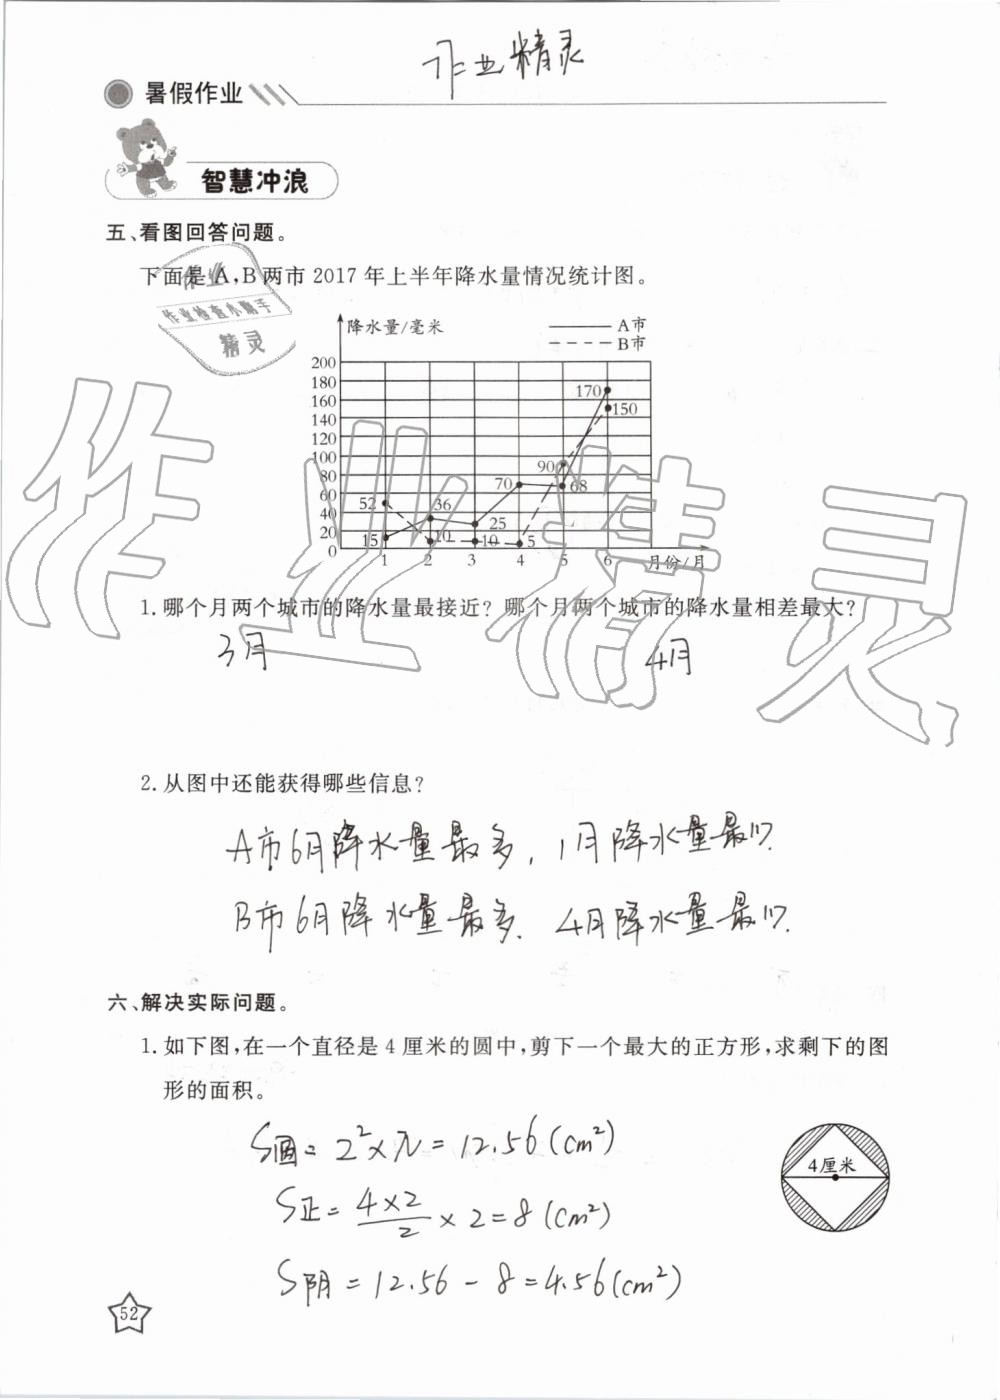 作业精灵
暑假作业
智慧冲浪
五、看图回答问题。
下面是A,B两市2017年上半年降水量情况统计图。
作业
作业检查小帮手
精灵
降水量/毫米
A市
B市
200
180
160
140
120
100
80
60
40
20
0
170
150
90
68
70
52
36
25
15
10
10
5
1 2 3 4 5 6 月份/月
作业精灵
1.哪个月两个城市的降水量最接近?哪个月两个城市的降水量相差最大?
3月 4月
2.从图中还能获得哪些信息?
A市6月降水量最多,1月降水量最少.
B市6月降水量最多.4月降水量最少.
六、解决实际问题。
1.如下图,在一个直径是4厘米的圆中,剪下一个最大的正方形,求剩下的图
形的面积。
S圆=2²×π=12.56(cm²)
4厘米
S正=4×2/2×2=8(cm²)
S阴=12.56-8=4.56(cm²)
52